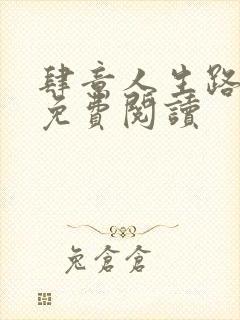 肆意人生路
免費閱讀
兔倉倉